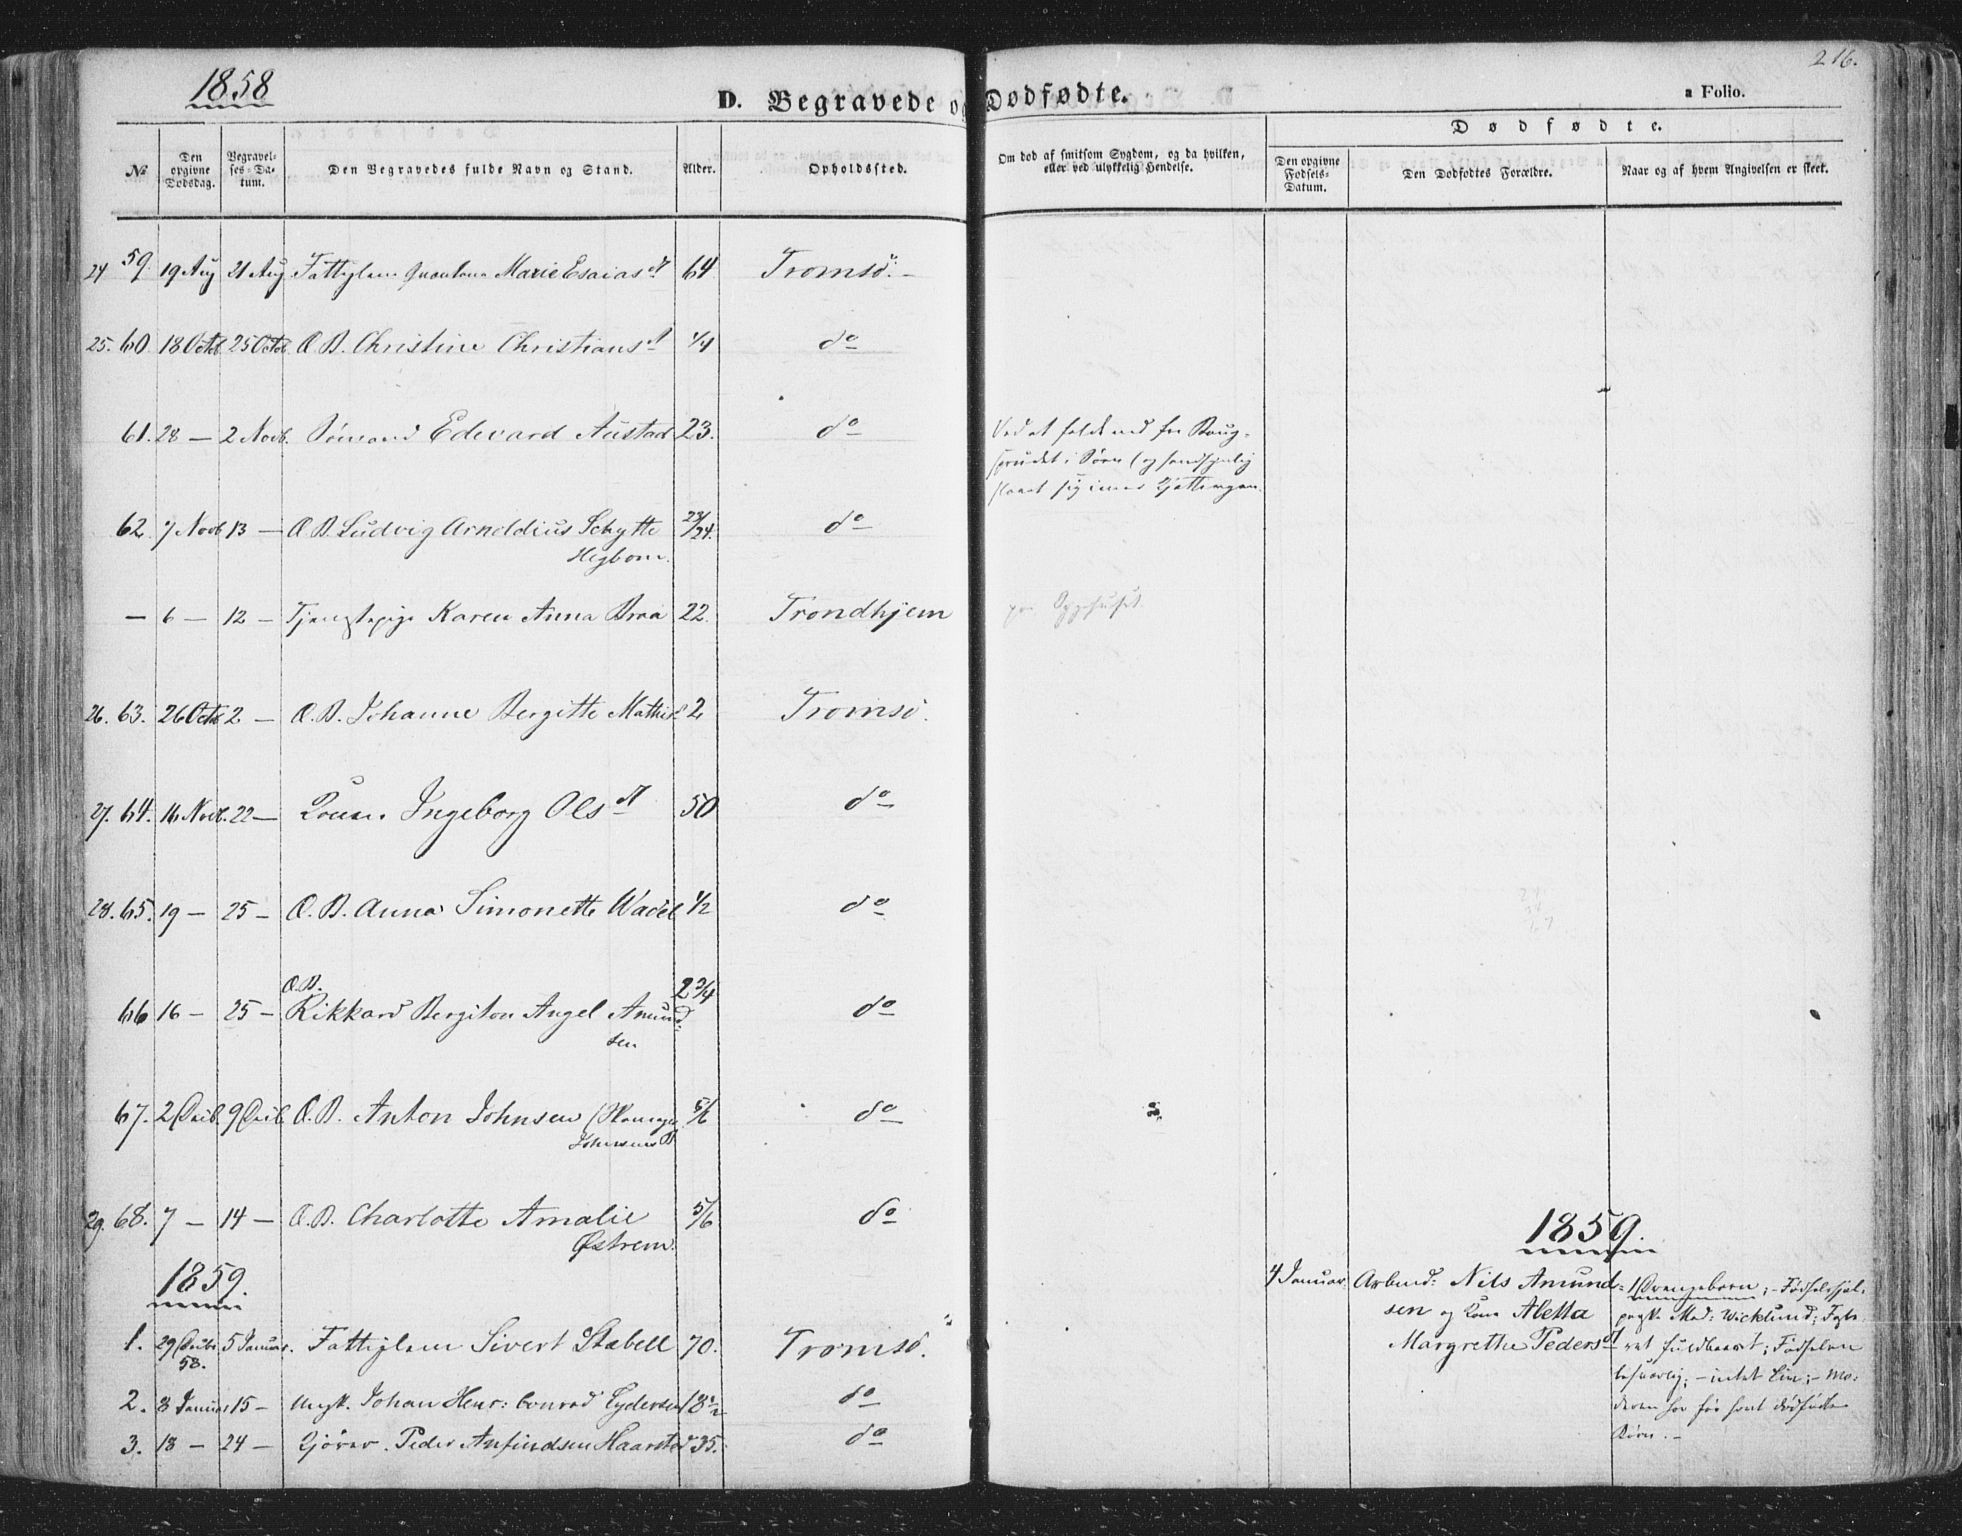 1858
216.
D. Begravede og Dødfødte.
a Folio.
Dødfødte.
№
Den opgivne Dødsdag.
Begravelses-Datum.
Den Begravedes fulde Navn og Stand.
Alder.
Opholdssted.
Om død af smitsom Sygdom, og da hvilken, eller ved ulykkelig Hendelse.
Den opgivne Fødsels-Datum.
Den Dødfødtes Forældre.
Naar og af hvem Angivelsen er skeet.
24 59. 19 Aug 21 Aug Fattiglem Marie Esaiasdt 64 Tromsö.
25. 60. 18 Octb 25 Octb Æ. B. Christine Christiansdt 1/4 do
61. 28 — 2 Novb. Sømand Edevard Austad 23. do
62. 7 Novb 13 — Æ B. Ludvig Arneldius Schytte 23/24. do
Høgbom.
— 6 — 12 — Tjenestepige Karen Anna Braa 22. Trondhjem paa Sygehuset
26. 63. 26 Octb 2 — Æ. B. Johanne Bergitte Mathis 2 Tromsö.
27. 64. 16 Novb. 22 — Kone. Ingeborg Olsdt 50 do
28. 65. 19 — 25 — Æ. B. Anna Simonette Wadel 1/2 do
Æ. B. 2 3/4
66 16 — 25 — Rikkard Bergiton Angel Amund- do
sen
67. 2 Decb. 9 Decb. Æ. B. Anton Johnsen 5/6 do
29. 68. 7 — 14 — Æ. B. Charlotte Amalie 5/6 do
Østrem.
1859.
1859.
1. 29 Decbr 58. 5 Januar. Fattiglem Sivert Stabell 70. Tromsö.
2. 8 Januar 15 — Ungk. Johan Henr: Conrad Eydersen 18 1/2 do
3. 18 — 24 — Peder Anfindsen Haarstad 35. do
4 Januar. Arbmd: Nils Amund-
sen og Kone Aletta
Margrethe Pedersdt
1 Drengebarn; Fødselshjæl-
Mad: Wicklund;
fuldbaaret; Fødselen
besværlig; — intet Liv; — Mo-
deren har før havt dødfødte
Børn. —